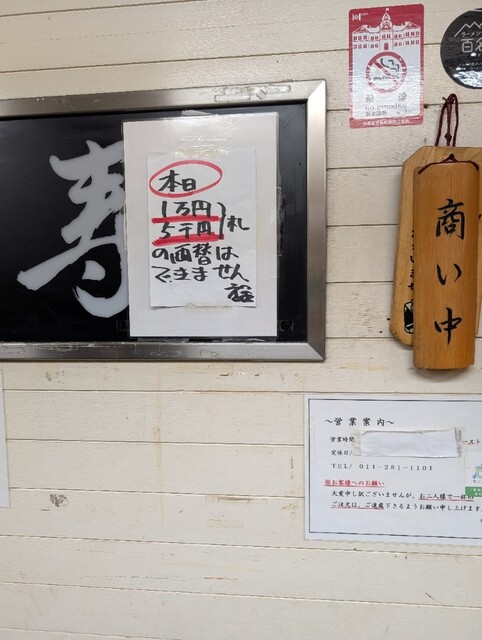 寿
本日
1万円
5千円 札
の両替は
できません
商い中
NO SMOKING
ラーメン
百名
～営業案内～
営業時間
定休日/
TEL/ 011-281-1101
※お客様へのお願い
大変申し訳ございませんが、お二人様で一杯の
ご注文は、ご遠慮下さるようお願い申し上げます。